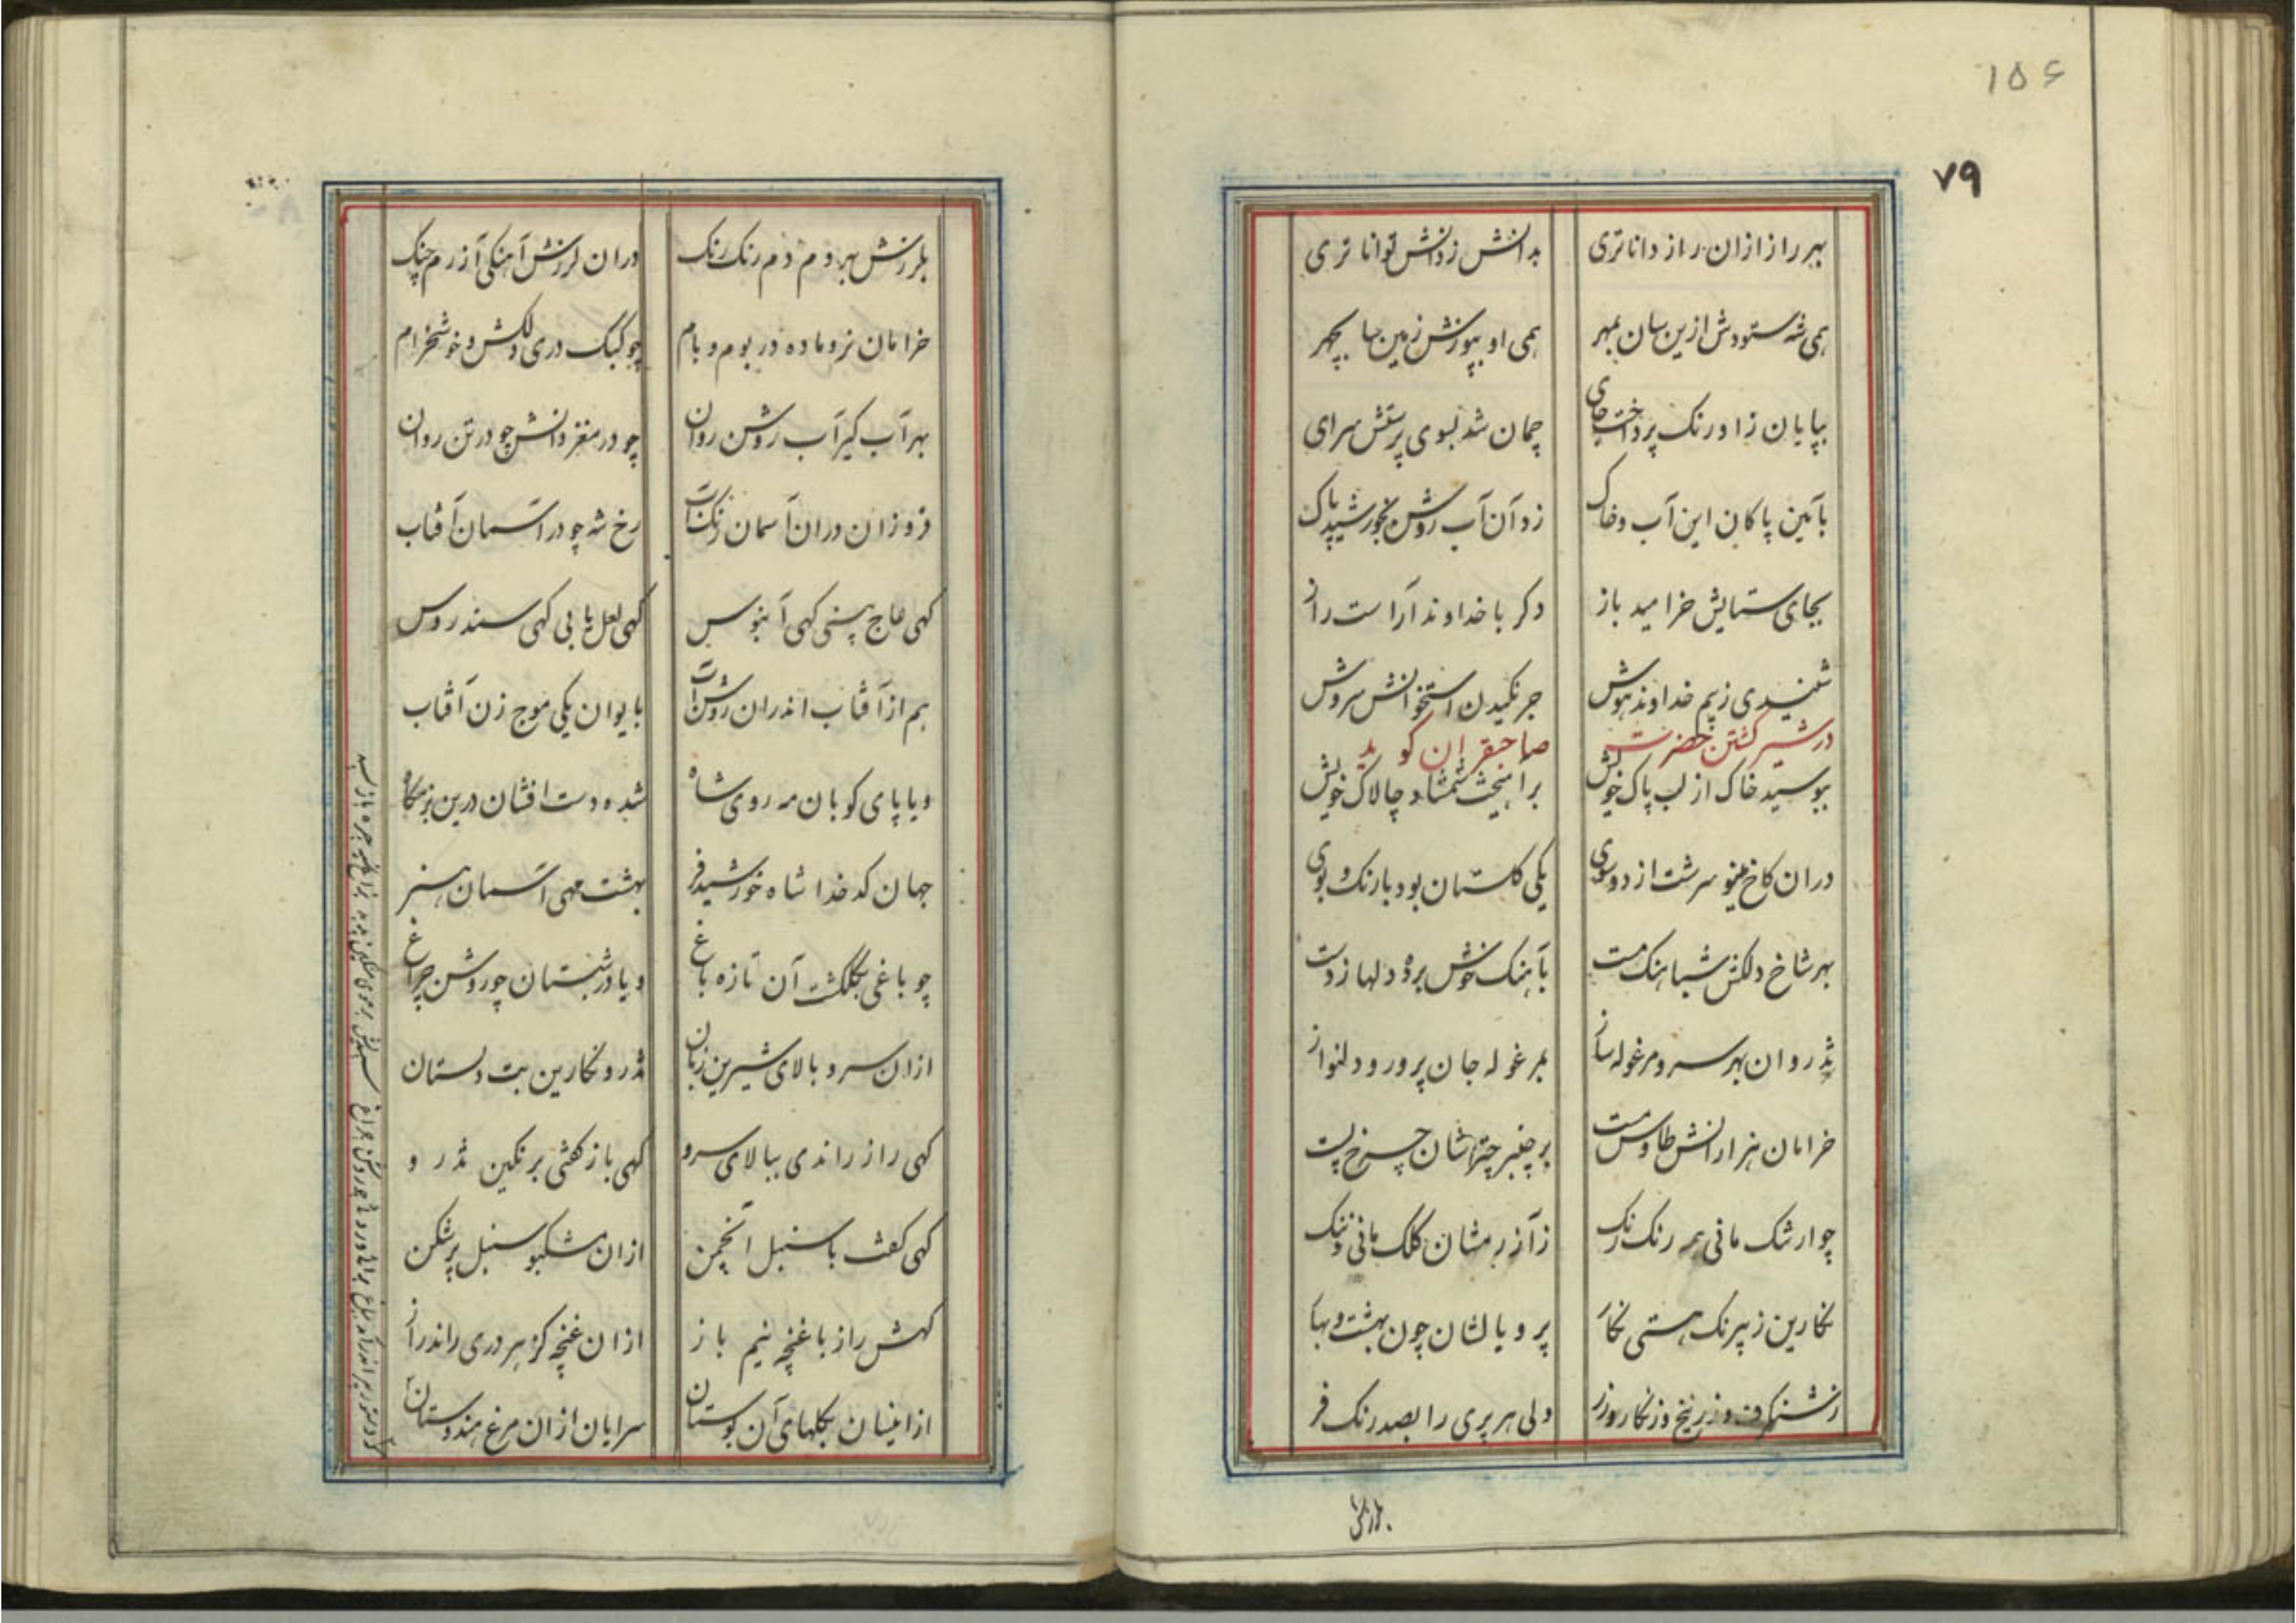 ۱۵۶
۷۹
بهر راز ازان راز داناتری بدانش ز دانش تواناتری
همی شه ستودش ازین سان بمهر همی او بپوزش زمین سا بچهر
بپایان ز اورنک پرداخت جای چمان شد بسوی پرستش سرای
بآئین پاکان این آب و خاک زد آن آب روشن بخورشید پاک
بجای ستایش خرامید باز دکر با خداوند آراست راز
شنیدی ز بیم خداوند هوش جرنکیدن استخوانش سروش
در شیر کشتن حضرت صاحبقران کوید
ببوسید خاک از لب پاک خویش برانیخت شمشاد چالاک خویش
دران کاخ مینو سرشت از دو سوی یکی کلستان بود با رنک و بوی
بهر شاخ دلکش شباهنک مست بآهنک خوش برده دلها ز دست
تذروان بهر سرو مرغوله ساز بمرغوله جان پرور و دلنواز
خرامان هزارانش طاوس مست پر چنبر چترشان چرخ پست
چو ارتنک مانی همه رنک رنک ز آزرمشان کلک مانی دنک
نکارین ز پیرنک هستی نکار پر و یالشان چون بهشت و بهار
ز شنکرف و زرنیخ و زنکار و زر ولی هر پری را بصد رنک فر
بلرزش
بلرزش بهر دم دم رنک رنک دران لرزش آهنکی آزرم چنک
خرامان نر و ماده در بوم و بام چو کبک دری دلکش و خوشخرام
بهر آب کیر آب روشن روان چو در مغز دانش چو در تن روان
فروزان دران آسمان رنک آب رخ شه چو در آسمان آفتاب
کهی عاج بینی کهی آبنوس کهی لعل یابی کهی سندروس
هم از آفتاب اندران روشن آب بایوان یکی موج زن آفتاب
و یا پای کوبان مه روی شاه شده دست افشان درین بزمکاه
جهان کدخدا شاه خورشید فر بهشت مهی آسمان هنر
چو باغی بکلکشت آن تازه باغ و یا در شبستان چو روشن چراغ
ازان سرو بالای شیرین زبان تذرو نکارین بت دلستان
کهی راز راندی ببالای سرو کهی باز کفتی برنکین تذرو
کهی کفت با سنبل انجمن ازان مشکبو سنبل پر شکن
کهش راز با غنچه نیم باز ازان غنچه کز هر دری راند راز
از اینسان بکلهای آن بوستان سرایان ازان مرغ هندوستان